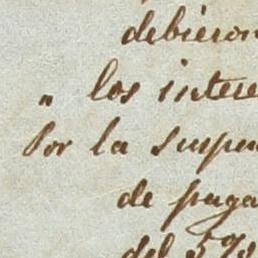 debieron
" los intere
Por la suspen
de paga
del 5%